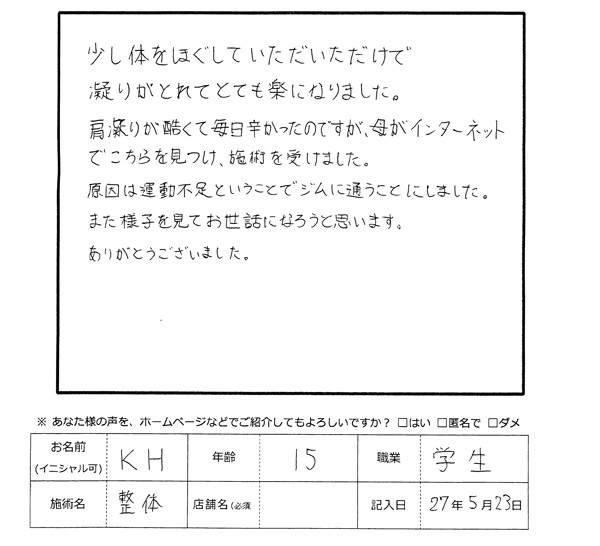 少し体をほぐしていただいただけで
凝りがとれてとても楽になりました。
肩凝りが酷くて毎日辛かったのですが、母がインターネット
でこちらを見つけ、施術を受けました。
原因は運動不足ということでジムに通うことにしました。
また様子を見てお世話になろうと思います。
ありがとうございました。
※ あなた様の声を、ホームページなどでご紹介してもよろしいですか？ □はい □匿名で □ダメ
お名前(イニシャル可) KH 年齢 15 職業 学生
施術名 整体 店舗名(必須 記入日 27年5月23日